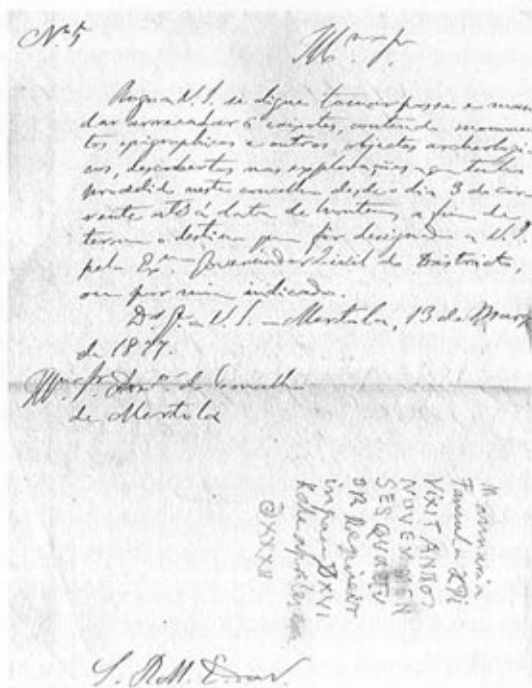 Nº 5
Illmo Sr
Rogo a V. S. se digne tomar posse e man
dar arrecadar 6 caixotes, contendo monumen
tos epigraphicos e outros objectos archeologi
cos, descobertos nas explorações a que tenho
procedido neste concelho desde o dia 3 do cor
rente até á data de hontem, a fim de
terem o destino que fôr designado a V. S.
pelo Exmo Governador Civil do Districto,
ou por mim indicado.
De Ge a V. S. Mertola, 13 de Março
de 1877.
Illmo Sr Admor do Concelho
de Mertola
Famula XPI
VIXIT ANNOS
NOVE MEN
SES QVATV
OR Requievit
in pace D XVI